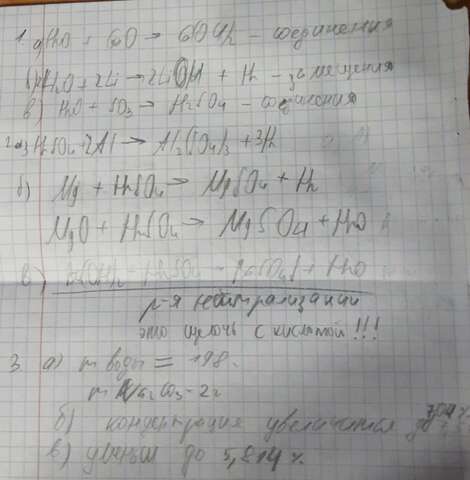 1. а) H2O + CaO → Ca(OH)2 - соединения
б) H2O + 2Li → 2LiOH + H2 - замещения
в) H2O + SO3 → H2SO4 - соединения
2. а) H2SO4 + 2Al → Al2(SO4)3 + 3H2
б) Mg + H2SO4 → MgSO4 + H2
MgO + H2SO4 → MgSO4 + H2O
в) H2SO4 + H2O
р-я нейтрализации
это щелочь с кислотой!!!
3. а) m воды = 198.
m Na2CO3 - 2г
б) концентрация увеличится до
в) уменьш до 5,814%